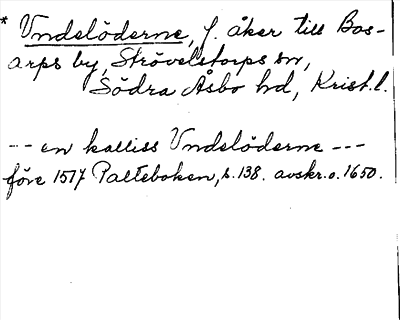 * Vndslöderne, f. åker till Bos-
arps by, Strövelstorps sn,
Södra Åsbo hd, Krist.l.
-- en kalliss Vndslöderne ---
före 1517 Palteboken, s. 138. avskr. o. 1650.